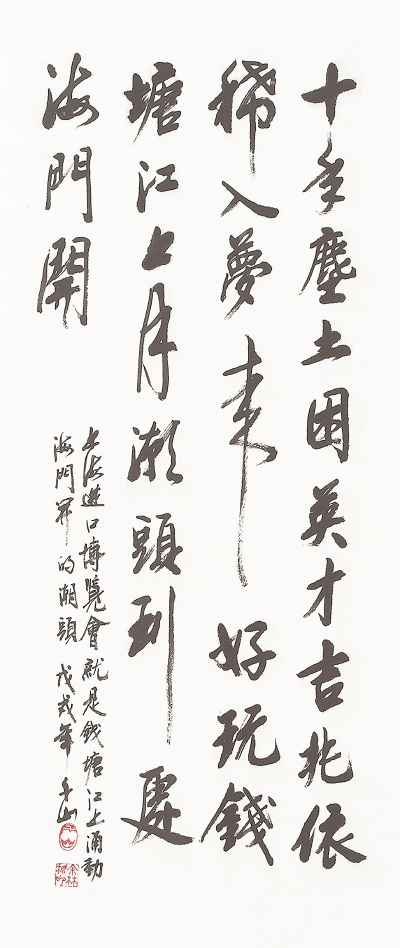 十年塵土困英才吉兆依
稀入夢来好玩錢
塘江上月潮頭到處
海門開
上海進口博覽會就是錢塘江上涌動
海門开的潮頭 戊戌年 千山